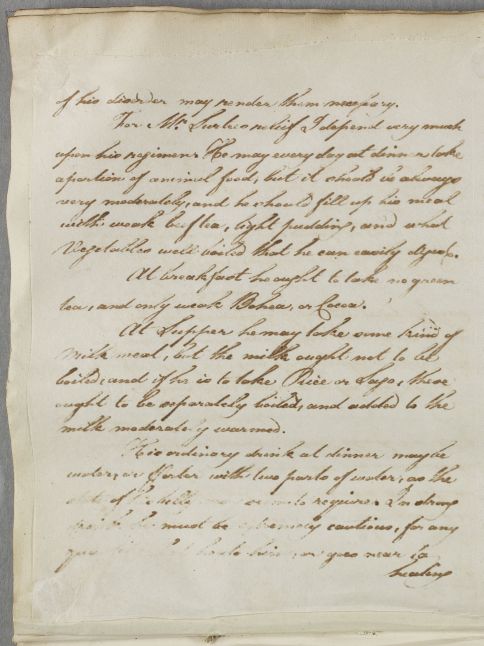 of his disorder may render them necessary.
For Mr. relief I depend very much
upon his regimen. He may every day at dinner take
a portion of animal food, but it should be always
very moderate, and he should fill up his meal
with weak beef tea, light pudding, and what
Vegetables well boiled that he can easily digest.
At breakfast he ought to take no green
tea, and only weak Bohea, or Cocoa.
At Supper he may take some kind of
Milk meal, but the milk ought not to be
boiled, and if he is to take Rice or Sago, these
ought to be separately boiled, and added to the
milk moderately warmed.
His ordinary drink at dinner may be
water, or Porter with two parts of water, as the
state of his belly may or may require. In strong
drink he must be extremely cautious, for any
him, or goes near to
heating